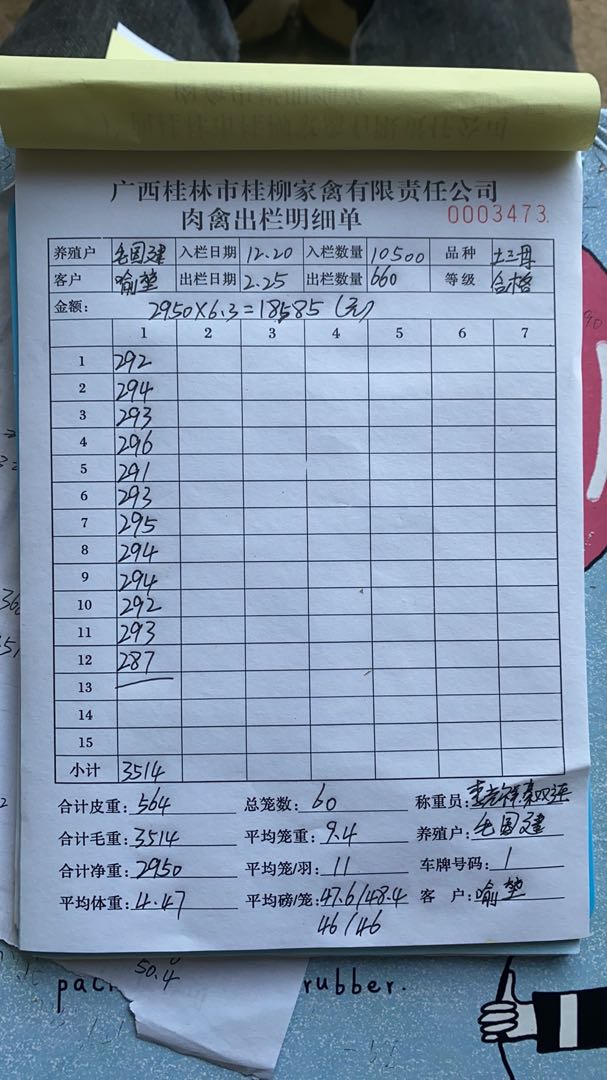 广西桂林市桂柳家禽有限责任公司
肉禽出栏明细单 0003473
养殖户 毛国建 入栏日期 12.20 入栏数量 10500 品种 土三丹
客户 喻堃 出栏日期 2.25 出栏数量 660 等级 合格
金额: 2950×6.3=18585(元)
1 2 3 4 5 6 7
1 292
2 294
3 293
4 296
5 291
6 293
7 295
8 294
9 294
10 292
11 293
12 287
13
14
15
小计 3514
合计皮重: 564 总笼数: 60 称重员:
合计毛重: 3514 平均笼重: 9.4 养殖户: 毛国建
合计净重: 2950 平均笼/羽: 11 车牌号码: 1
平均体重: 4.47 平均磅/笼: 47.6/48.4 客 户: 喻堃
46/46
50.4
rubber.